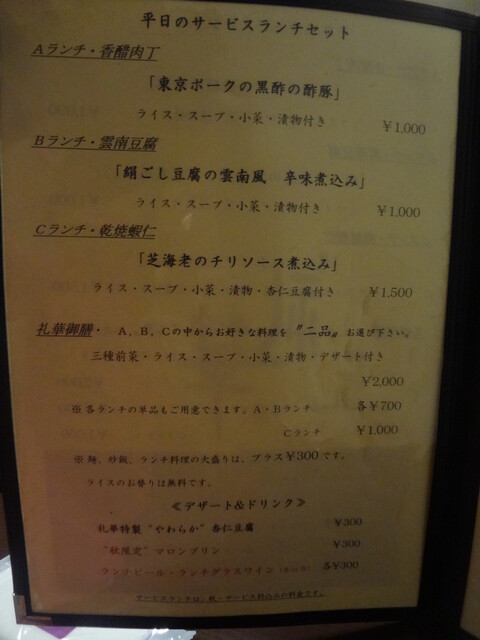 平日のサービスランチセット
Aランチ・香醋肉丁
「東京ポークの黒酢の酢豚」
ライス・スープ・小菜・漬物付き ¥1,000
Bランチ・雲南豆腐
「絹ごし豆腐の雲南風 辛味煮込み」
ライス・スープ・小菜・漬物付き ¥1,000
Cランチ・乾焼蝦仁
「芝海老のチリソース煮込み」
ライス・スープ・小菜・漬物・杏仁豆腐付き ¥1,500
礼華御膳・ A、B、Cの中からお好きな料理を〝二品〟お選び下さい。
三種前菜・ライス・スープ・小菜・漬物・デザート付き
¥2,000
※ 各ランチの単品もご用意できます。A・Bランチ 各¥700
Cランチ ¥1,000
※ 麺、炒飯、ランチ料理の大盛りは、プラス¥300です。
ライスのお替りは無料です。
≪デザート&ドリンク≫
礼華特製“やわらか”杏仁豆腐 ¥300
“秋限定”マロンプリン ¥300
ランチビール・ランチグラスワイン 各¥300
サービスランチは、税・サービス料込みの料金です。